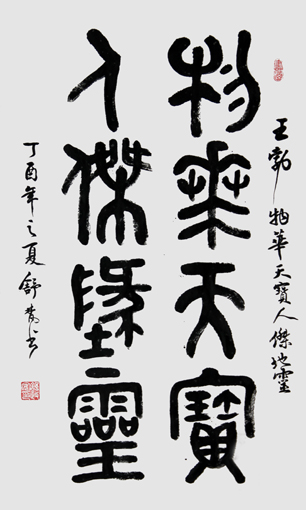 王勃 物華天寶人傑地靈
物華天寶
人傑地靈
丁酉年之夏舒